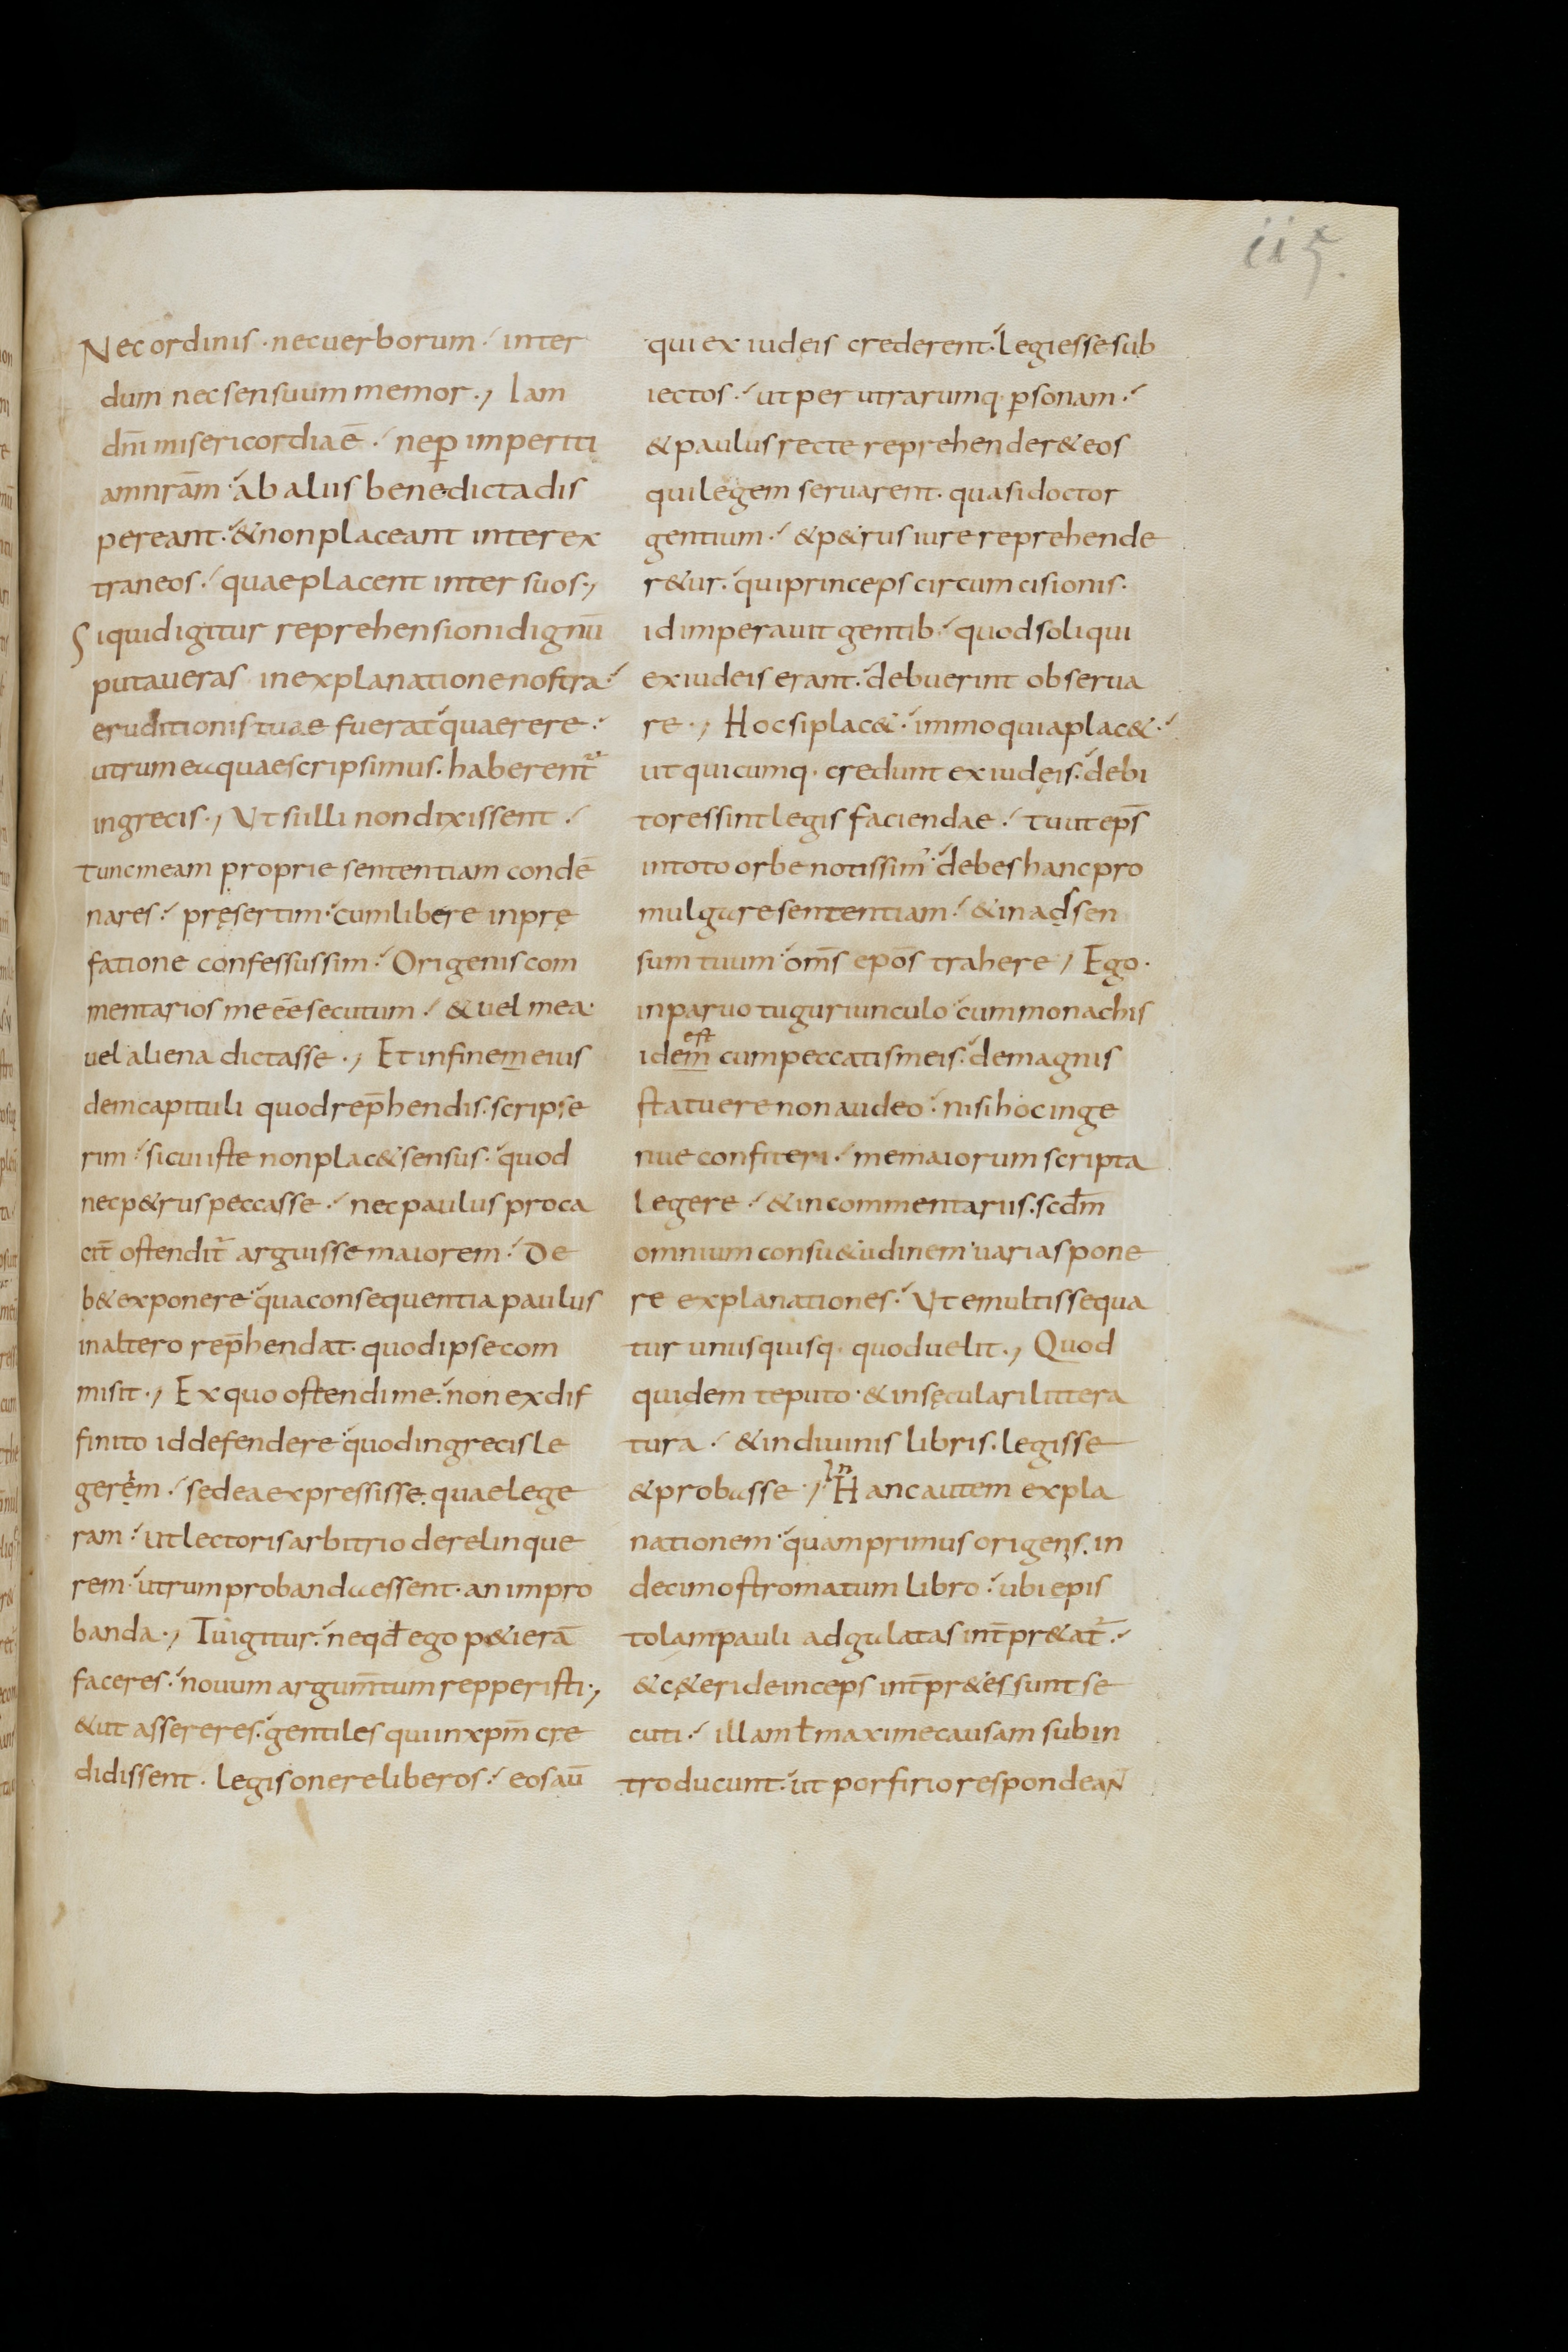 ii5.
Nec ordinis · nec uerborum · inter
dum nec sensuum memor ., Iam
dn̄i misericordia ē · ne ꝑ imperiti
am nr̄am · ab aliis bene dicta dis
pereant · & non placeant inter ex
traneos · quae placent inter suos .,
Siquid igitur reprehensioni dignū
putaueras in explanatione nostra ·
eruditionis tuae fuerat quaerere ·
utrum ea quae scripsimus · haberent̄
in grecis ., Ut si illi non dixissent ·
tunc meam proprie sententiam condē
nares · pręsertim · cum libere in prę
fatione confessus sim · Origenis com
mentarios me eē secutum · & uel mea ·
uel aliena dictasse ., Et in finem eius
dem capituli quod rep̄hendis · scripse
rim · si cui iste non plac& sensus · quod
nec p&rus peccasse · nec paulus proca
cit̄ ostendit̄ arguisse maiorem · De
b& exponere · qua consequentia paulus
in altero rep̄hendat · quod ipse com
misit ., Ex quo ostendi me · non ex dif
finito id defendere · quod in grecis le
gerem · sed ea expressisse · quae lege
ram · ut lectoris arbitrio derelinque
rem · utrum probanda essent · an impro
banda ., Tu igitur · ne qđ ego p&ierā
faceres · nouum argum̄tum repperisti .,
& ut assereres · gentiles qui in xpm̄ cre
didissent · legis onere liberos · eos aū
qui ex iudęis crederent · legi esse sub
iectos · ut per utrarumq · ꝑsonam ·
& paulus recte reprehender& eos
qui legem seruarent · quasi doctor
gentium · & p&rus iure reprehende
r&ur · qui princeps circumcisionis ·
id imperauit gentib · quod soli qui
ex iudeis erant · debuerint obserua
re ., Hoc si plac& · immo quia plac& ·
ut quicumq · credunt ex iudęis · debi
tores sint legis faciendae · tu ut ep̄s
in toto orbe notissim' · debes hanc pro
mulgare sententiam · & in adsen
sum tuum · om̄s epōs trahere , Ego ·
in paruo tuguriunculo cum monachis
est
idem cum peccatis meis · de magnis
statuere non audeo · nisi hoc inge
nue confiteri · me maiorum scripta
legere · & in commentariis · scđm
omnium consu&udinem uarias pone
re explanationes · Ut e multis sequa
tur unusquisq · quod uelit ., Quod
quidem te puto · & in sęculari littera
tura · & in diuinis libris · legisse
In
& probasse ., Hanc autem expla
nationem · quam primus origens · in
decimo stromatum libro · ubi epis
tolam pauli ad galatas int̄pr&at̄ ·
& c&eri deinceps int̄pr&es sunt se
cuti · illam ł maxime causam subin
troducunt · ut porfirio respondeaN